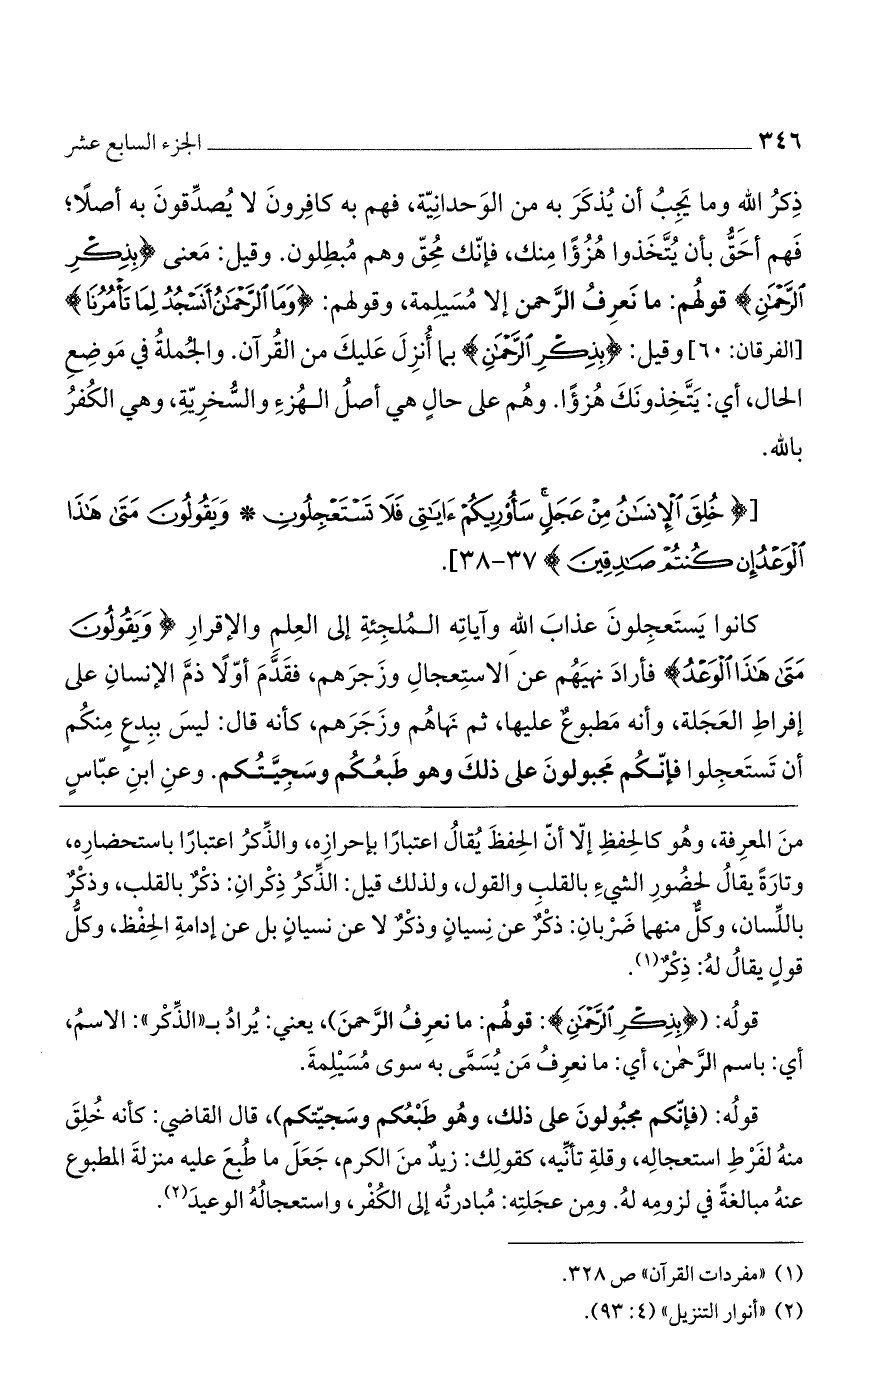 ٣٤٦ الجزء السابع عشر
ذِكرُ الله وما يَجِبُ أن يُذكَرَ به من الوَحدانِيّة، فهم به كافِرونَ لا يُصدِّقونَ به أصلًا؛
فَهم أحَقُّ بأن يُتَّخَذوا هُزُؤًا مِنك، فإنّك مُحِقّ وهم مُبطِلون. وقيل: مَعنى ﴿بِذِكْرِ
ٱلرَّحْمَٰنِ﴾ قولُهم: ما نَعرِفُ الرَّحمن إلا مُسَيلِمة، وقولهم: ﴿وَمَا ٱلرَّحْمَٰنُ أَنَسْجُدُ لِمَا تَأْمُرُنَا﴾
[الفرقان: ٦٠] وقيل: ﴿بِذِكْرِ ٱلرَّحْمَٰنِ﴾ بما أُنزِلَ عَليكَ من القُرآن. والجُملةُ في مَوضِعِ
الحال، أي: يَتَّخِذونَكَ هُزُؤًا. وهُم على حالٍ هي أصلُ الـهُزءِ والسُّخرِيّةِ، وهي الكُفرُ
بالله.
[﴿خُلِقَ ٱلْإِنسَٰنُ مِنْ عَجَلٍ ۚ سَأُو۟رِيكُمْ ءَايَٰتِى فَلَا تَسْتَعْجِلُونِ * وَيَقُولُونَ مَتَىٰ هَٰذَا
ٱلْوَعْدُ إِن كُنتُمْ صَٰدِقِينَ﴾ ٣٧-٣٨].
كانوا يَستَعجِلونَ عذابَ اللهِ وآياتِه الـمُلجِئةِ إلى العِلمِ والإقرارِ ﴿وَيَقُولُونَ
مَتَىٰ هَٰذَا ٱلْوَعْدُ﴾ فأرادَ نهيَهُم عن الاستِعجالِ وزَجرَهم، فقَدَّمَ أوّلًا ذمَّ الإنسانِ على
إفراطِ العَجَلة، وأنه مَطبوعٌ عليها، ثم نَهاهُم وزَجَرَهم، كأنه قال: ليسَ بِبِدعٍ مِنكُم
أن تَستَعجِلوا فإنّـكُم مَجبولونَ على ذلكَ وهو طَبعُكُم وسَجِيَّـتُـكُم. وعنِ ابنِ عبّاسٍ
منَ المعرِفة، وهُو كالحِفظِ إلّا أنّ الحِفظَ يُقالُ اعتبارًا بإحرازِه، والذِّكرُ اعتبارًا باستحضارِه،
وتارَةً يقالُ لحضُورِ الشيءِ بالقلبِ والقول، ولذلك قيل: الذِّكرُ ذِكْران: ذكْرٌ بالقلب، وذكْرٌ
باللِّسان، وكلٌّ منهما ضَرْبانِ: ذكْرٌ عن نِسيانٍ وذكْرٌ لا عن نسيانٍ بل عن إدامةِ الحِفْظ، وكلُّ
قولٍ يقالُ لهُ: ذِكْرٌ(١).
قولُه: (﴿بِذِكْرِ ٱلرَّحْمَٰنِ﴾: قولُهم: ما نعرِفُ الرَّحمنَ)، يعني: يُرادُ بـ«الذِّكْر»: الاسمُ،
أي: باسمِ الرَّحمٰن، أي: ما نعرِفُ مَن يُسَمَّى به سوى مُسَيْلِمةَ.
قولُه: (فإنّكم مجبُولونَ على ذلك، وهُو طَبْعُكم وسَجيّتكم)، قال القاضي: كأنه خُلِقَ
منهُ لفَرْطِ استعجالِه، وقلةِ تأنِّيه، كقولِك: زيدٌ منَ الكرم، جَعَلَ ما طُبعَ عليه منزلةَ المطبوع
عنهُ مبالغةً في لزومِه لهُ. ومِن عجَلتِه: مُبادرتُه إلى الكُفْر، واستعجالُهُ الوعيدَ(٢).
(١) «مفردات القرآن» ص ٣٢٨.
(٢) «أنوار التنزيل» (٤: ٩٣).